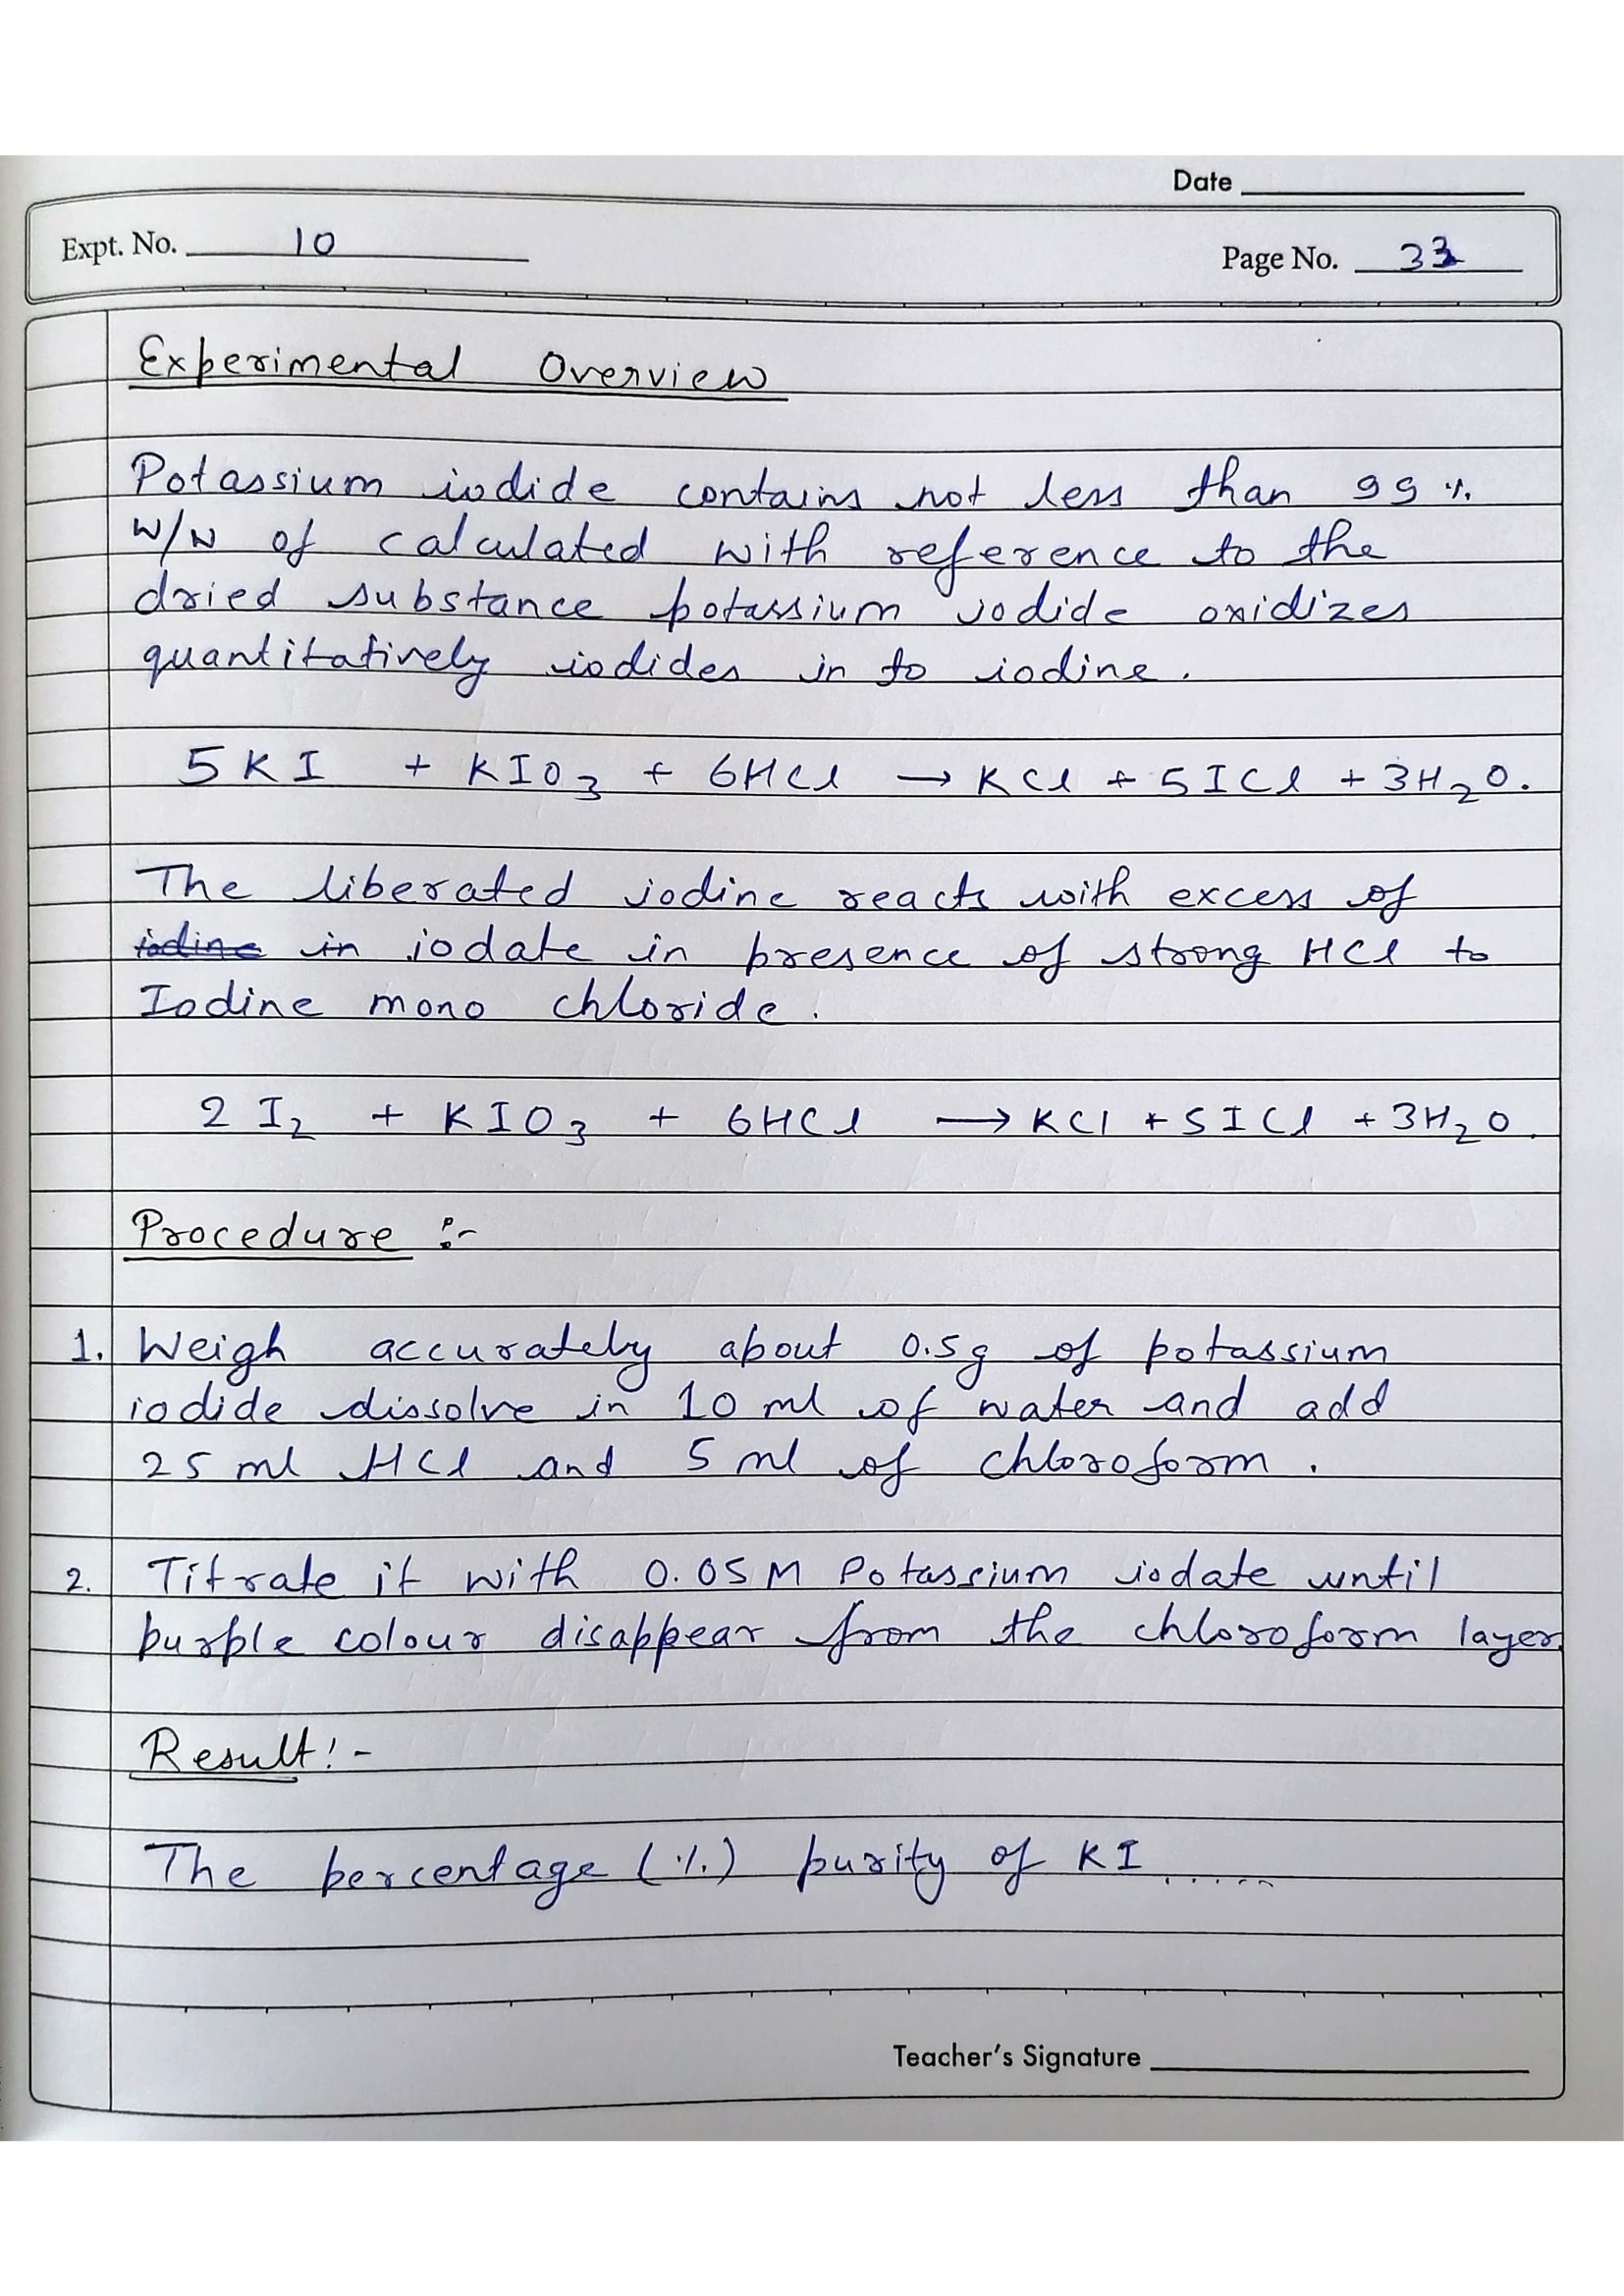 Date
Expt. No. 10
Page No. 33
Experimental Overview
Potassium iodide contains not less than 99 %
W/W of calculated with reference to the
dried substance potassium iodide oxidizes
quantitatively iodides in to iodine.
5KI + KIO₃ + 6HCl → KCl + 5ICl + 3H₂O.
The liberated iodine reacts with excess of
iodine in iodate in presence of strong HCl to
Iodine mono chloride.
2I₂ + KIO₃ + 6HCl → KCl + 5ICl + 3H₂O.
Procedure :-
1. Weigh accurately about 0.5g of potassium
iodide dissolve in 10 ml of water and add
25 ml HCl and 5 ml of chloroform.
2. Titrate it with 0.05M Potassium iodate until
purple colour disappear from the chloroform layer
Result:-
The percentage (%) purity of KI ......
Teacher's Signature